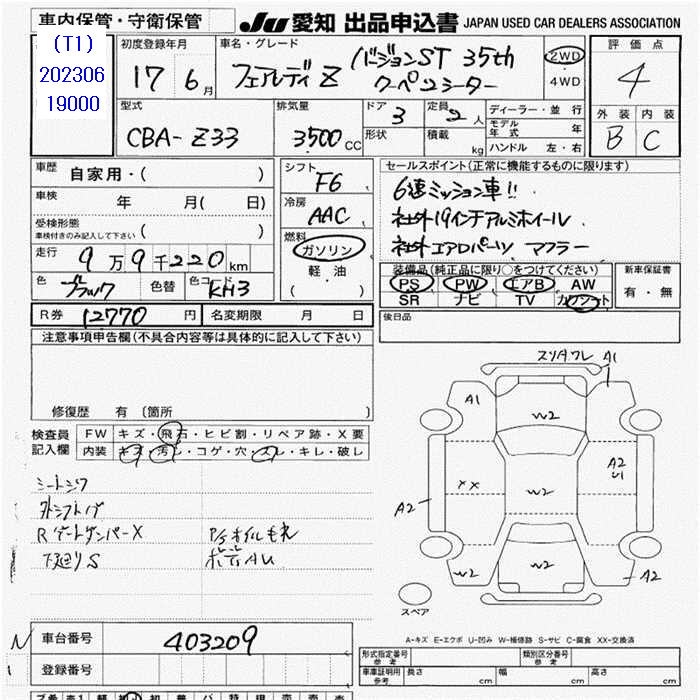 車内保管・守衛保管
JU 愛知 出品申込書 JAPAN USED CAR DEALERS ASSOCIATION
(T1)
202306
19000
初度登録年月
17 6月
車名・グレード
バージョンST 35th
フェアレディZ クーペ2シーター
2WD
・
4WD
評価点
4
外装 内装
B C
型式
CBA-Z33
排気量
3500 CC
ドア
3
形状
定員
2 人
積載 kg
ディーラー・並行
モデル年式 年
ハンドル 左・右
車歴
自家用・( )
車検 年 月( 日)
受検形態
車検付きのみ記入して下さい ( )
走行
9万9千220km
色
ブラック
色替
色コード
KH3
シフト
F6
冷房
AAC
燃料
ガソリン
・
軽・油
( )
セールスポイント(正常に機能するものに限ります)
6速ミッション車!!
社外19インチアルミホイール
社外エアロパーツ マフラー
装備品(純正品に限り○をつけてください)
PS PW エアB AW
SR ナビ TV カワシート
新車保証書
有・無
R券 12770 円
名変期限 月 日
後日品
注意事項申告欄(不具合内容等は具体的に記入して下さい)
修復歴 有 (箇所 )
検査員
記入欄
FW キズ・飛石・ヒビ割・リペア跡・X要
内装 キズ・汚レ・コゲ・穴・スレ・キレ・破レ
シートシワ
R ゲートダンパーX
P/Sオイルモレ
下廻りS
ボディAU
スリキワレ
A1
A1
W2
A2
U1
XX
W2
A2
W2
W2
A2
スペア
A-キズ E-エクボ U-凹み W-補修跡 S-サビ C-腐食 XX-交換済
N
車台番号 403209
登録番号
形式指定番号
参考
類別区分番号
参考
車庫証明用
参考
長さ cm 幅 cm 高さ cm